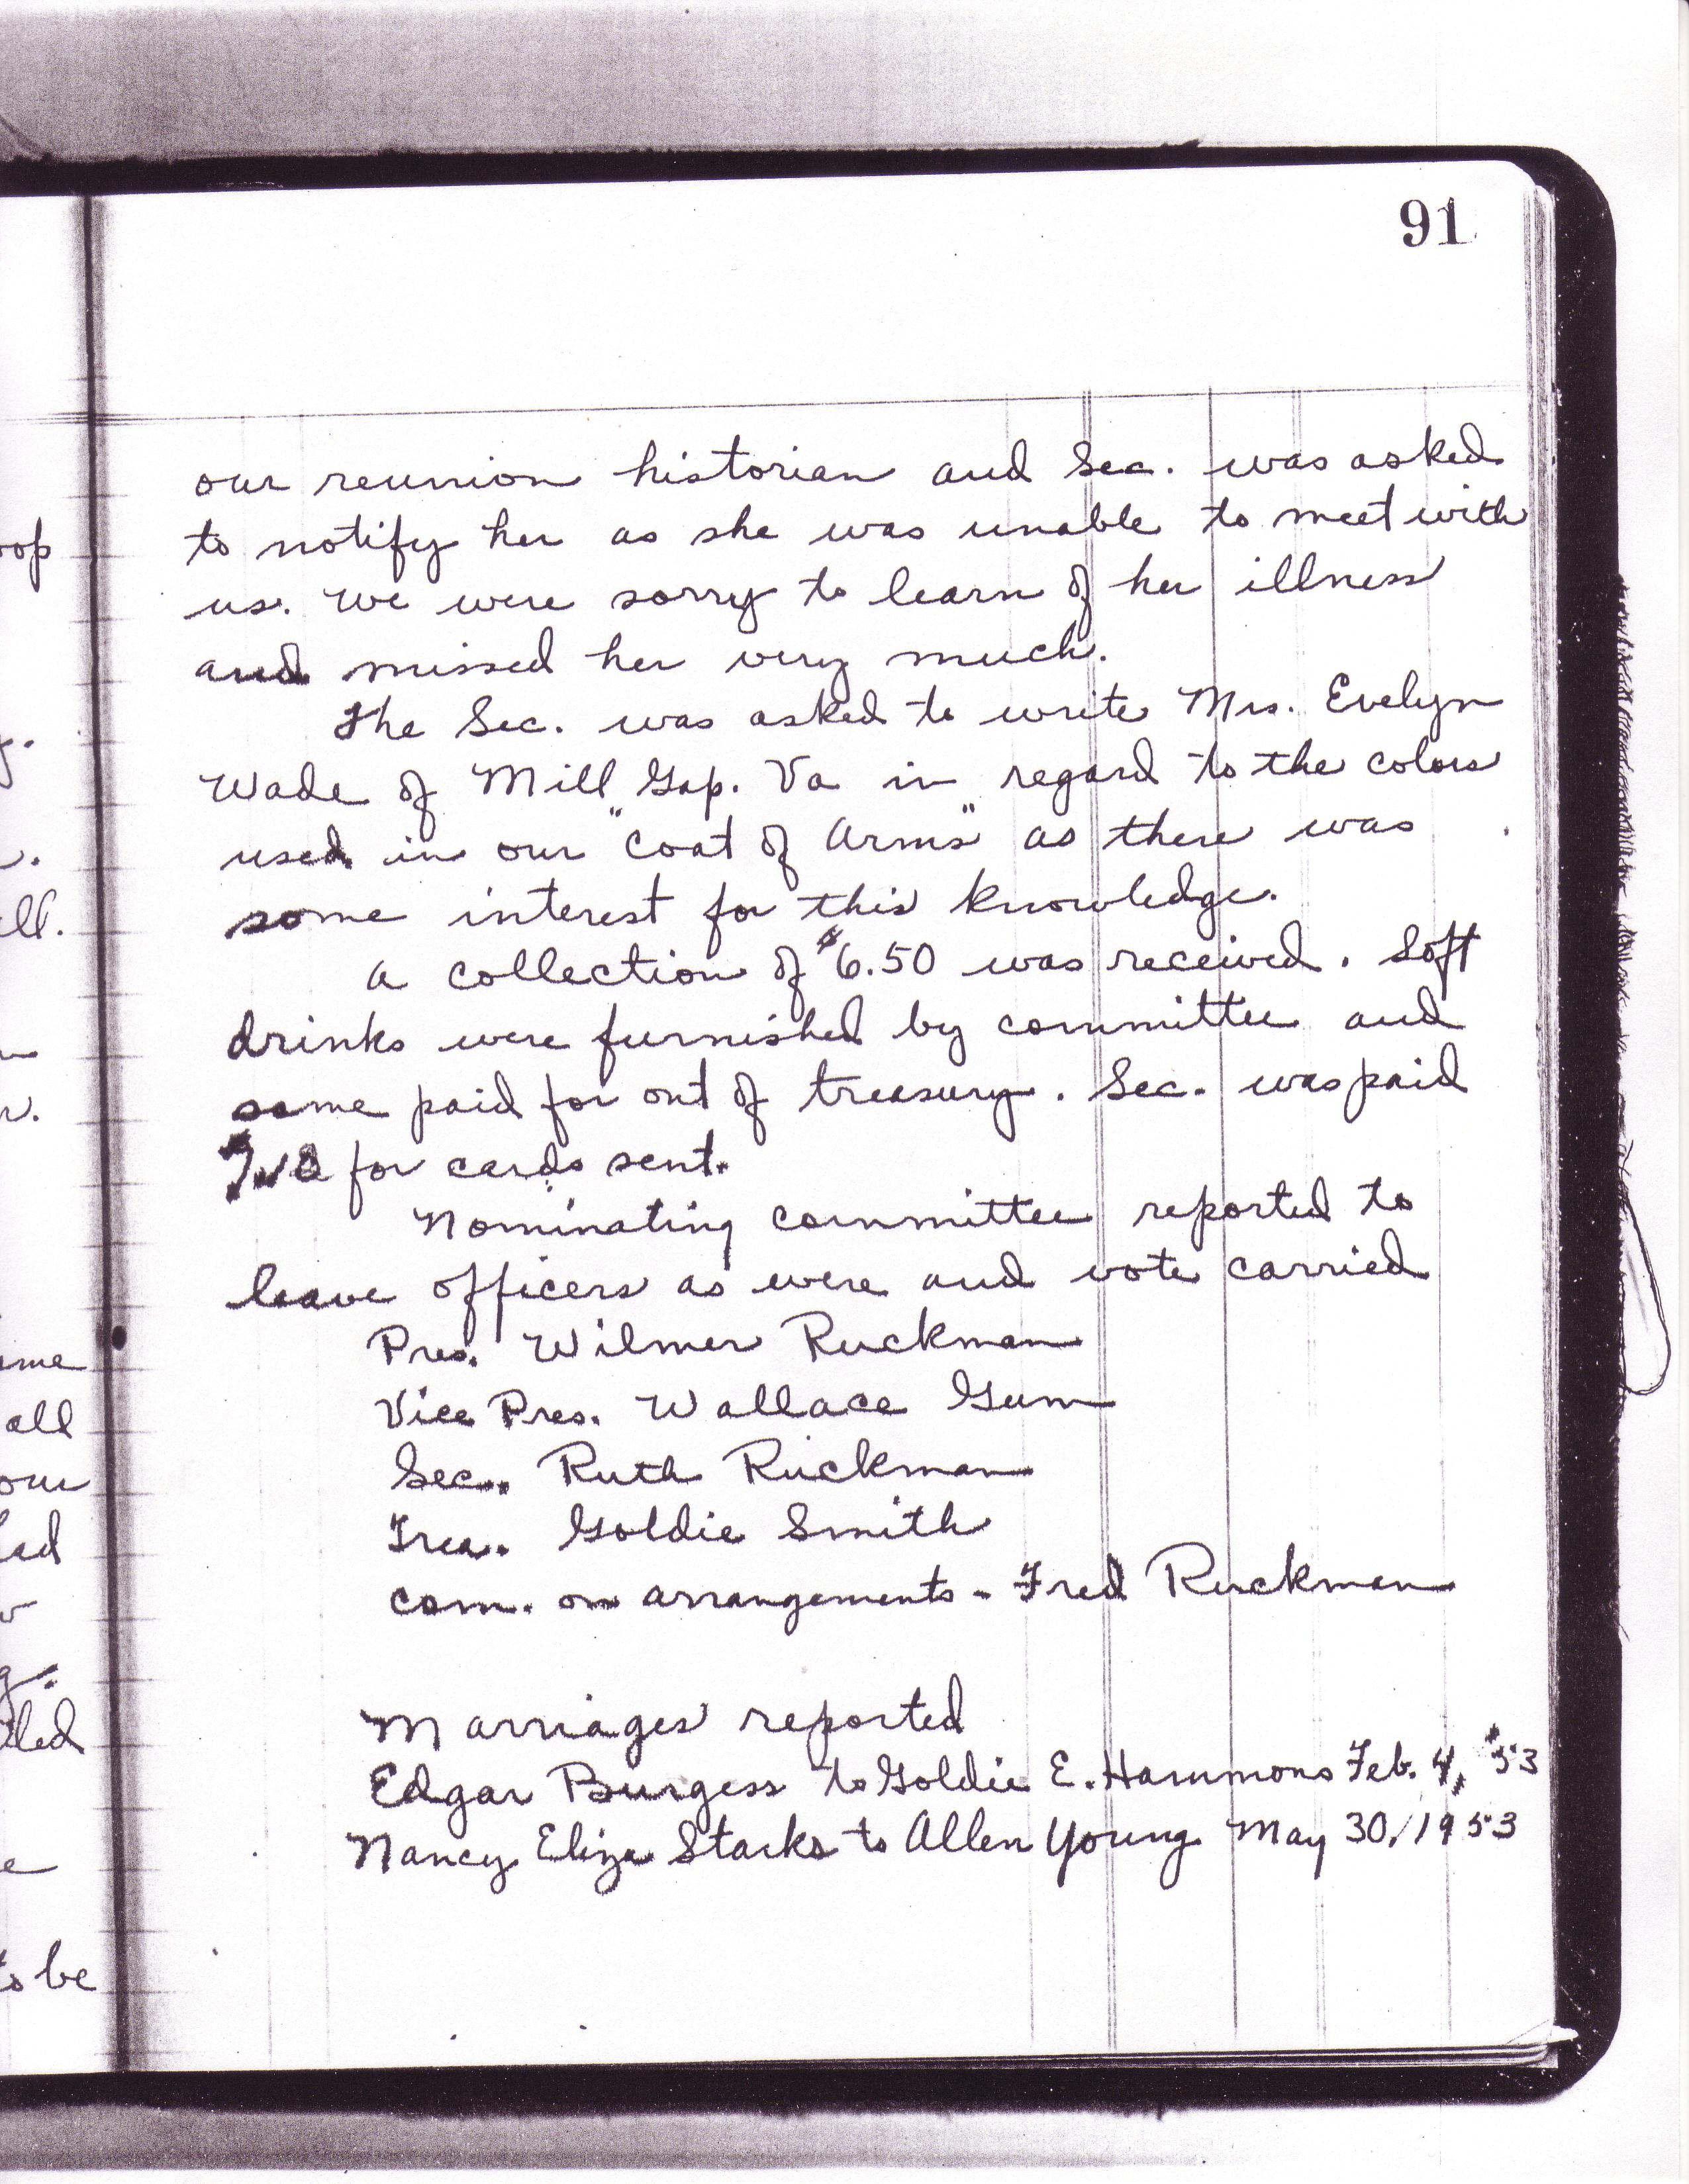 91
our reunion historian and Sec. was asked
to notify her as she was unable to meet with
us. We were sorry to learn of her illness
and missed her very much.
The Sec. was asked to write Mrs. Evelyn
Wade of Mill Gap. Va in regard to the colors
used in our "Coat of Arms" as there was
some interest for this knowledge.
A collection of $6.50 was received. Soft
drinks were furnished by committee and
same paid for out of treasury. Sec. was paid
for cards sent.
Nominating committee reported to
leave officers as were and vote carried
Pres. Wilmer Ruckman
Vice Pres. Wallace Gum
Sec. Ruth Ruckman
Trea. Goldie Smith
Com. on arrangements - Fred Ruckman
Marriages reported
Edgar Burgess to Goldie E. Hammons Feb. 4, '53
Nancy Eliza Starks to Allen Young May 30, 1953
rop
ell.
all
our
to be